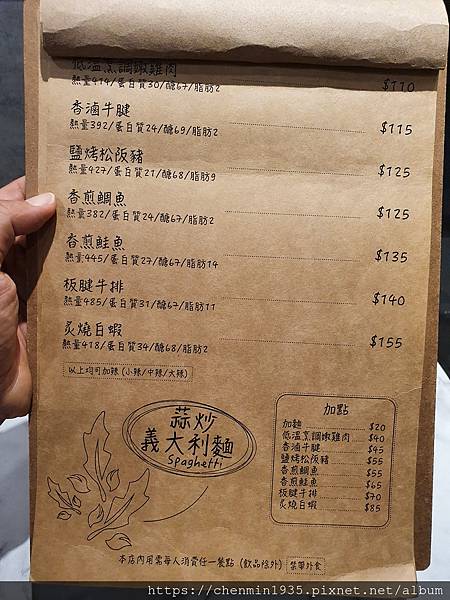 低溫烹調嫩雞肉
熱量414/蛋白質30/醣67/脂肪2 $110
香滷牛腱
熱量392/蛋白質24/醣69/脂肪2 $115
鹽烤松阪豬
熱量427/蛋白質21/醣68/脂肪9 $125
香煎鯛魚
熱量382/蛋白質24/醣67/脂肪2 $125
香煎鮭魚
熱量445/蛋白質27/醣67/脂肪14 $135
板腱牛排
熱量485/蛋白質31/醣68/脂肪11 $140
炙燒白蝦
熱量418/蛋白質34/醣68/脂肪2 $155
以上均可加辣(小辣/中辣/大辣)
蒜炒
義大利麵
Spaghetti
加點
加麵 $20
低溫烹調嫩雞肉 $40
香滷牛腱 $45
鹽烤松阪豬 $55
香煎鯛魚 $55
香煎鮭魚 $65
板腱牛排 $70
炙燒白蝦 $85
本店內用需每人消費任一餐點(飲品除外) 禁帶外食
https://chenmin1935.pixnet.net/album